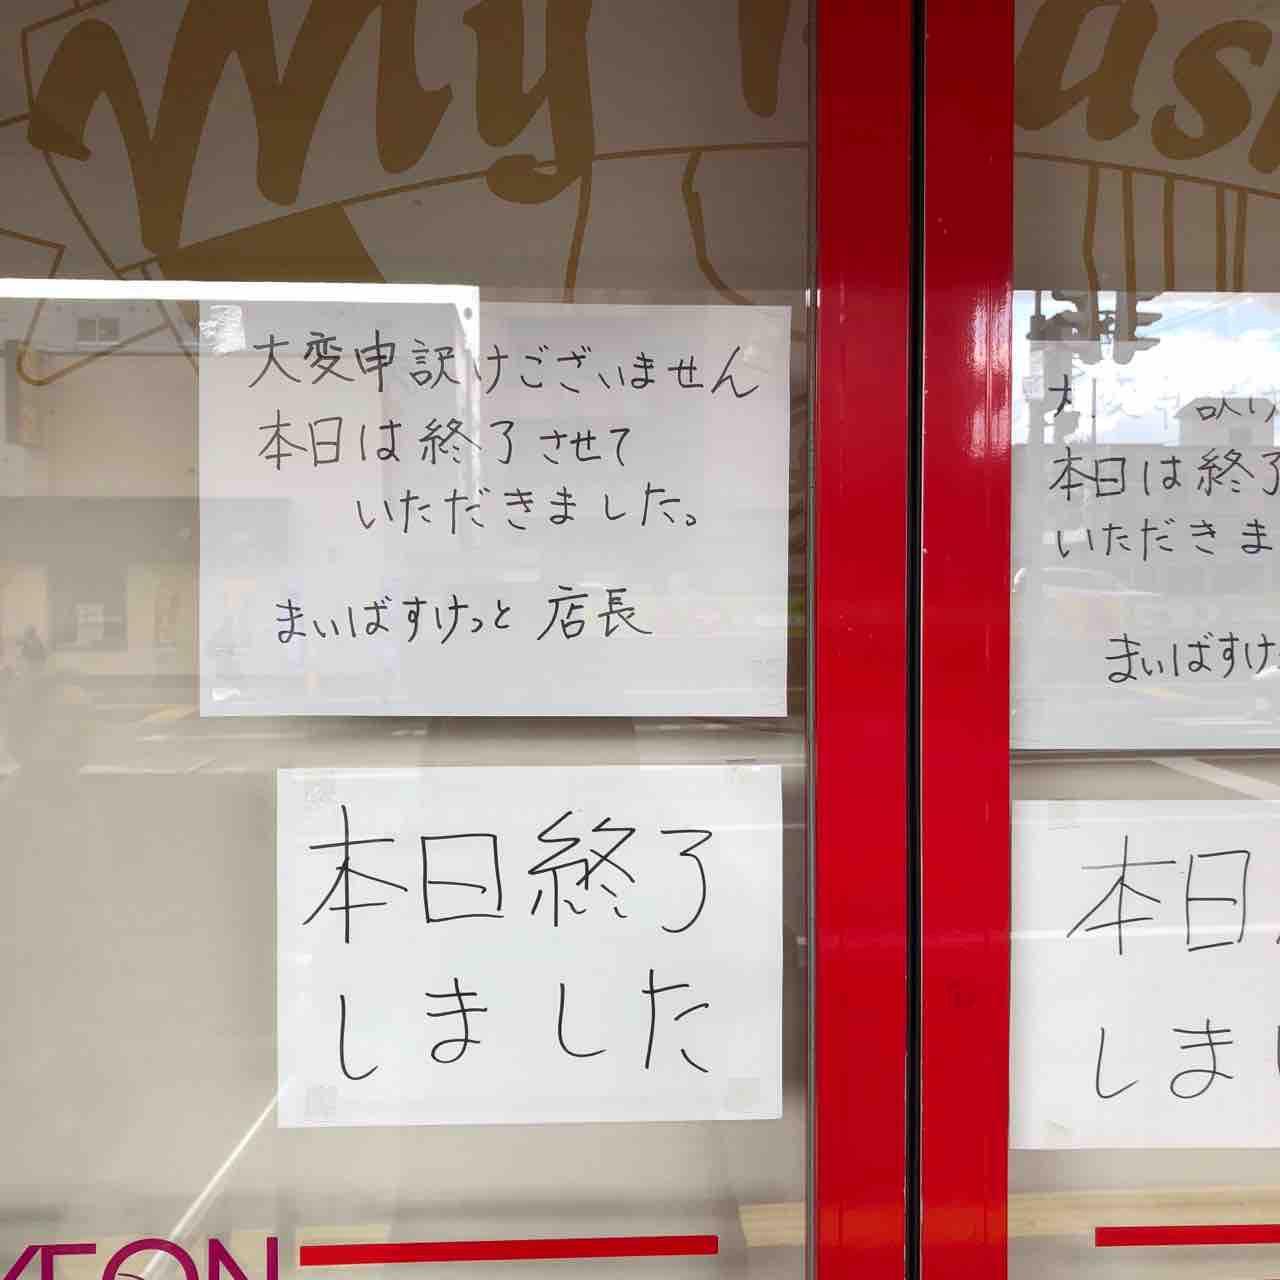 My
大変申訳けございません
本日は終了させて
いただきました。
まいばすけっと 店長
本日終了
しました
AEON
本日は終了
いただきま
まいばすけ
本日
しま